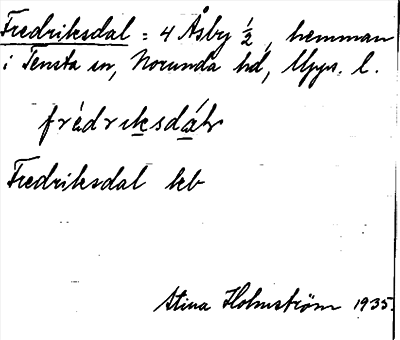 Fredriksdal = 4 Åsby ½, hemman
i Tensta sn, Norunda hd, Upps. l.
frédriksdáls
Fredriksdal kb
Stina Holmström 1935.